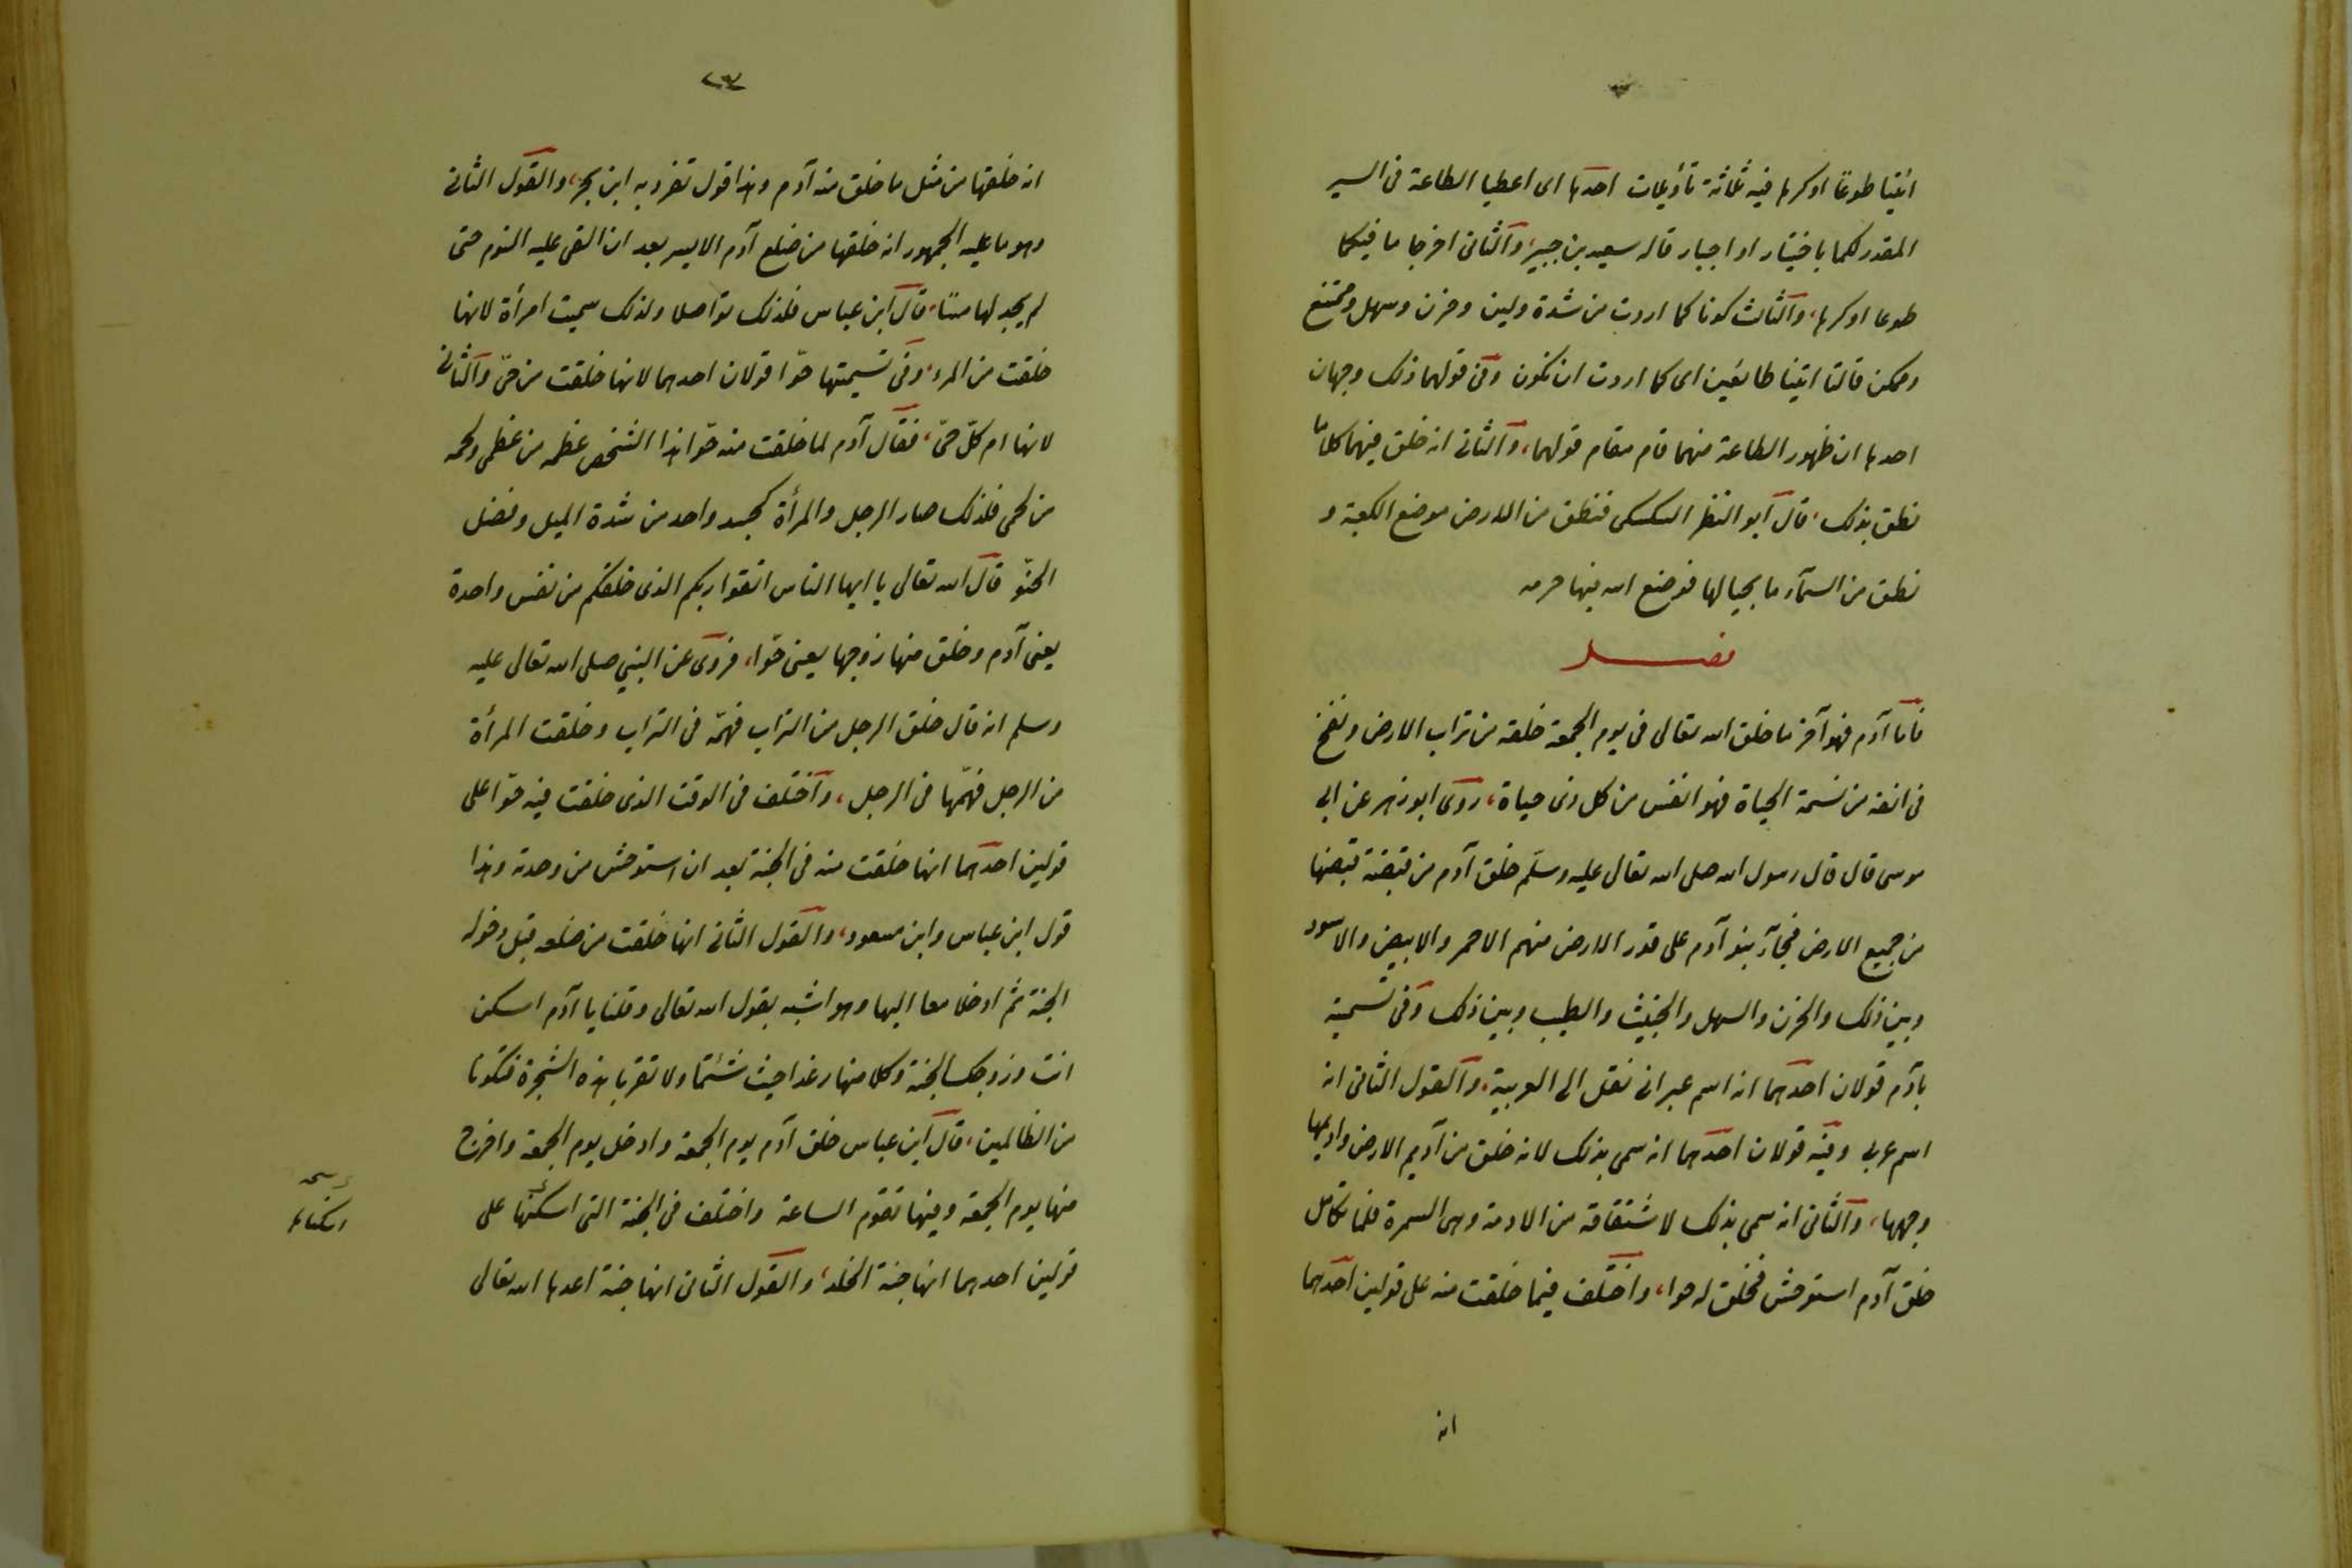 ائتيا طوعًا او كرها فيه ثلاثة تأويلات احدها اى اعطيا الطاعة فى السير
المقدر لكما باختيار او اجبار قاله سعيد بن جبير، والثانى اخرجا ما فيكما
طوعا او كرها، والثالث كونا كما اردت من شدة ولين وحزن وسهل وممتنع
وممكن قالتا اتينا طائعين اى كما اردت ان نكون وفى قولهما ذلك وجهان
احدها ان ظهور الطاعة منهما قام مقام قولهما، والثانى انه خلق فيهما كلاما
نطق بذلك، قال ابو النظر السكسكى فنطق من الارض موضع الكعبة و
نطق من السمآء ما بحيالها فوضع الله فيها حرمه
فصل
فأما آدم فهو آخر ما خلق الله تعالى فى يوم الجمعة خلقه من تراب الارض ونفخ
فى انفه من نسمة الحياة فهو انفس من كل ذى حياة، روى ابو زهر عن ابى
موسى قال قال رسول الله صلى الله تعالى عليه وسلم خلق آدم من قبضة قبضها
من جميع الارض فجآء بنو آدم على قدر الارض منهم الاحمر والابيض والاسود
وبين ذلك والحزن والسهل والخبيث والطيب وبين ذلك وفى تسمية
بآدم قولان احدهما انه اسم عبرانى نقل الى العربية، والقول الثانى انه
اسم عربى وفيه قولان احدهما انه سمى بذلك لانه خلق من آديم الارض واديمها
وجهها، والثانى انه سمى بذلك لاشتقاقه من الادمة وهى السمرة فلما تكامل
خلق آدم استوحش فخلق له حوا، واختلف فيما خلقت منه على قولين احدهما
انه
٢٣
انه خلقها من مثل ما خلق منه آدم وهذا قول تفرد به ابن بحر، والقول الثانى
وهو ما عليه الجمهور انه خلقها من ضلع آدم الايسر بعد ان القى عليه النوم حتى
لم يجد لها مسًا، قال ابن عباس فلذلك تواصلا ولذلك سميت امرأة لانها
خلقت من المرء، وفى تسميتها حوّا قولان احدهما لانها خلقت من حىّ والثانى
لانها ام كلّ حىّ، فقال آدم لما خلقت منه حوّا هذا الشخص عظمه من عظمى ولحمه
من لحمى فلذلك صار الرجل والمرأة كجسد واحد من شدة الميل وفضل
الحنوّ قال الله تعالى يا ايها الناس اتقوا ربكم الذى خلقكم من نفس واحدة
يعنى آدم وخلق منها زوجها يعنى حوّا، فروى عن النبى صلى الله تعالى عليه
وسلم انه قال خلق الرجل من التراب فهمّه فى التراب وخلقت المرأة
من الرجل فهمّها فى الرجل، واختلف فى الوقت الذى خلقت فيه حوّا على
قولين احدهما انها خلقت منه فى الجنة بعد ان استوحش من وحدته وهذا
قول ابن عباس وابن مسعود، والقول الثانى انها خلقت من ضلعه قبل دخوله
الجنة ثمّ ادخلا معا اليها وهو اشبه بقول الله تعالى وقلنا يا آدم اسكن
انت وزوجك الجنة وكلا منها رغدا حيث شئتما ولا تقربا هذه الشجرة فتكونا
من الظالمين، قال ابن عباس خلق آدم يوم الجمعة وادخل يوم الجمعة واخرج
منها يوم الجمعة وفيها تقوم الساعة واختلف فى الجنة التى اسكنها على
قولين احدهما انها جنة الخلد، والقول الثانى انها جنة اعدها الله تعالى
اسكناها